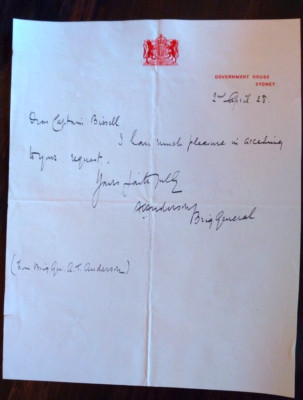 GOVERNMENT HOUSE
SYDNEY
2nd April 28.
Dear Captain Bissell
I have much pleasure in acceding
to your request.
Yours faithfully
ATAnderson
Brig General
(From Brig Gen. A.T. Anderson)